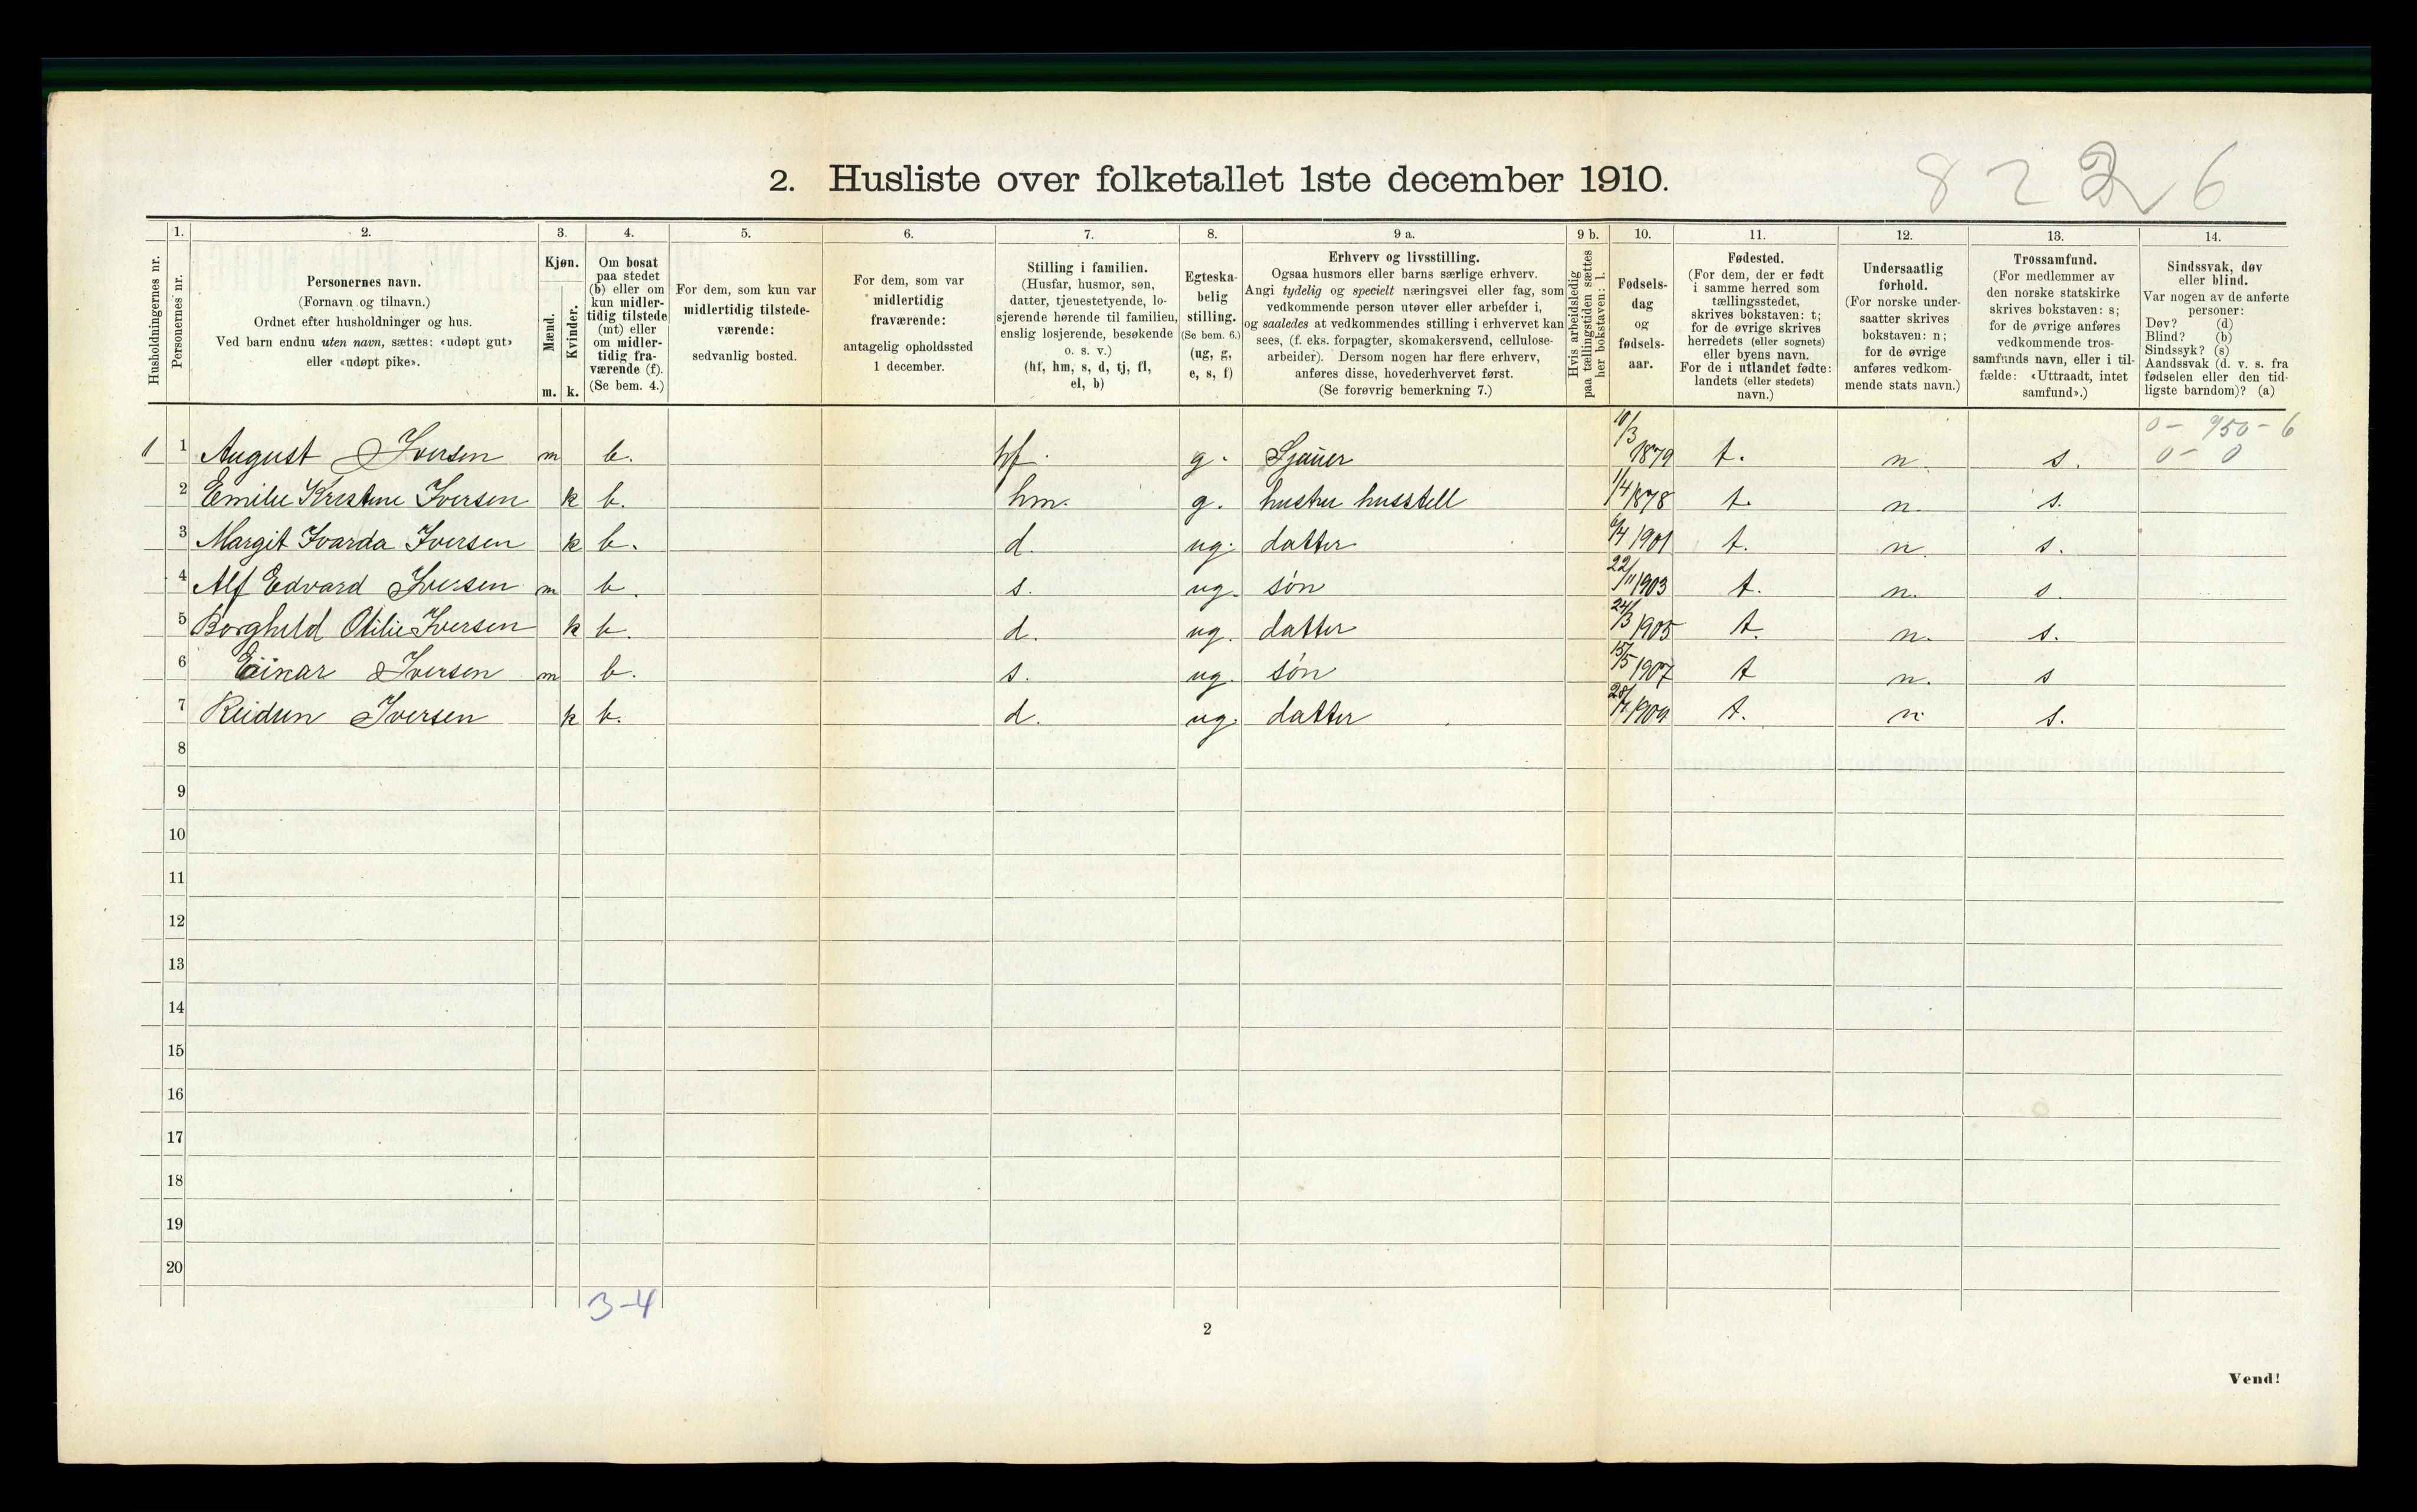 2. Husliste over folketallet 1ste december 1910.
8 2 2 6
Husholdningernes nr.
1. Personernes nr.
2. Personernes navn.
(Fornavn og tilnavn.)
Ordnet efter husholdninger og hus.
Ved barn endnu uten navn, sættes: «udøpt gut»
eller «udøpt pike».
3. Kjøn.
Mænd. Kvinder.
m. k.
4. Om bosat
paa stedet
(b) eller om
kun midler-
tidig tilstede
(mt) eller
om midler-
tidig fra-
værende (f).
(Se bem. 4.)
5. For dem, som kun var
midlertidig tilstede-
værende:
sedvanlig bosted.
6. For dem, som var
midlertidig
fraværende:
antagelig opholdssted
1 december.
7. Stilling i familien.
(Husfar, husmor, søn,
datter, tjenestetyende, lo-
sjerende hørende til familien,
enslig losjerende, besøkende
o. s. v.)
(hf, hm, s, d, tj, fl,
el, b)
8. Egteska-
belig
stilling.
(Se bem. 6.)
(ug, g,
e, s, f)
9 a. Erhverv og livsstilling.
Ogsaa husmors eller barns særlige erhverv.
Angi tydelig og specielt næringsvei eller fag, som
vedkommende person utøver eller arbeider i,
og saaledes at vedkommendes stilling i erhvervet kan
sees, (f. eks. forpagter, skomakersvend, cellulose-
arbeider). Dersom nogen har flere erhverv,
anføres disse, hovederhvervet først.
(Se forøvrig bemerkning 7.)
9 b. Hvis arbeidsledig
paa tællingstiden sættes
her bokstaven: l.
10. Fødsels-
dag
og
fødsels-
aar.
11. Fødested.
(For dem, der er født
i samme herred som
tællingsstedet,
skrives bokstaven: t;
for de øvrige skrives
herredets (eller sognets)
eller byens navn.
For de i utlandet fødte:
landets (eller stedets)
navn.)
12. Undersaatlig
forhold.
(For norske under-
saatter skrives
bokstaven: n;
for de øvrige
anføres vedkom-
mende stats navn.)
13. Trossamfund.
(For medlemmer av
den norske statskirke
skrives bokstaven: s;
for de øvrige anføres
vedkommende tros-
samfunds navn, eller i til-
fælde: «Uttraadt, intet
samfund».)
14. Sindssvak, døv
eller blind.
Var nogen av de anførte
personer:
Døv? (d)
Blind? (b)
Sindssyk? (s)
Aandssvak (d. v. s. fra
fødselen eller den tid-
ligste barndom)? (a)
1 1 August Iversen m b. hf. g. Sjauer 10/3 1879 t. n. s. 0 - 0
2 Emilie Kristine Iversen k b. hm. g. hustru husstell 1/4 1878 t. n. s.
3 Margit Ivarda Iversen k b. d. ug. datter 6/4 1901 t. n. s.
4 Alf Edvard Iversen m b. s. ug. søn 22/11 1903 t. n. s.
5 Borghild Otilie Iversen k b. d. ug. datter 24/3 1905 t. n. s.
6 Einar Iversen m b. s. ug. søn 15/5 1907 t n. s
7 Reidun Iversen k b. d. ug. datter 1909 t. n. s.
8
9
10
11
12
13
14
15
16
17
18
19
20
3-4
2
Vend!